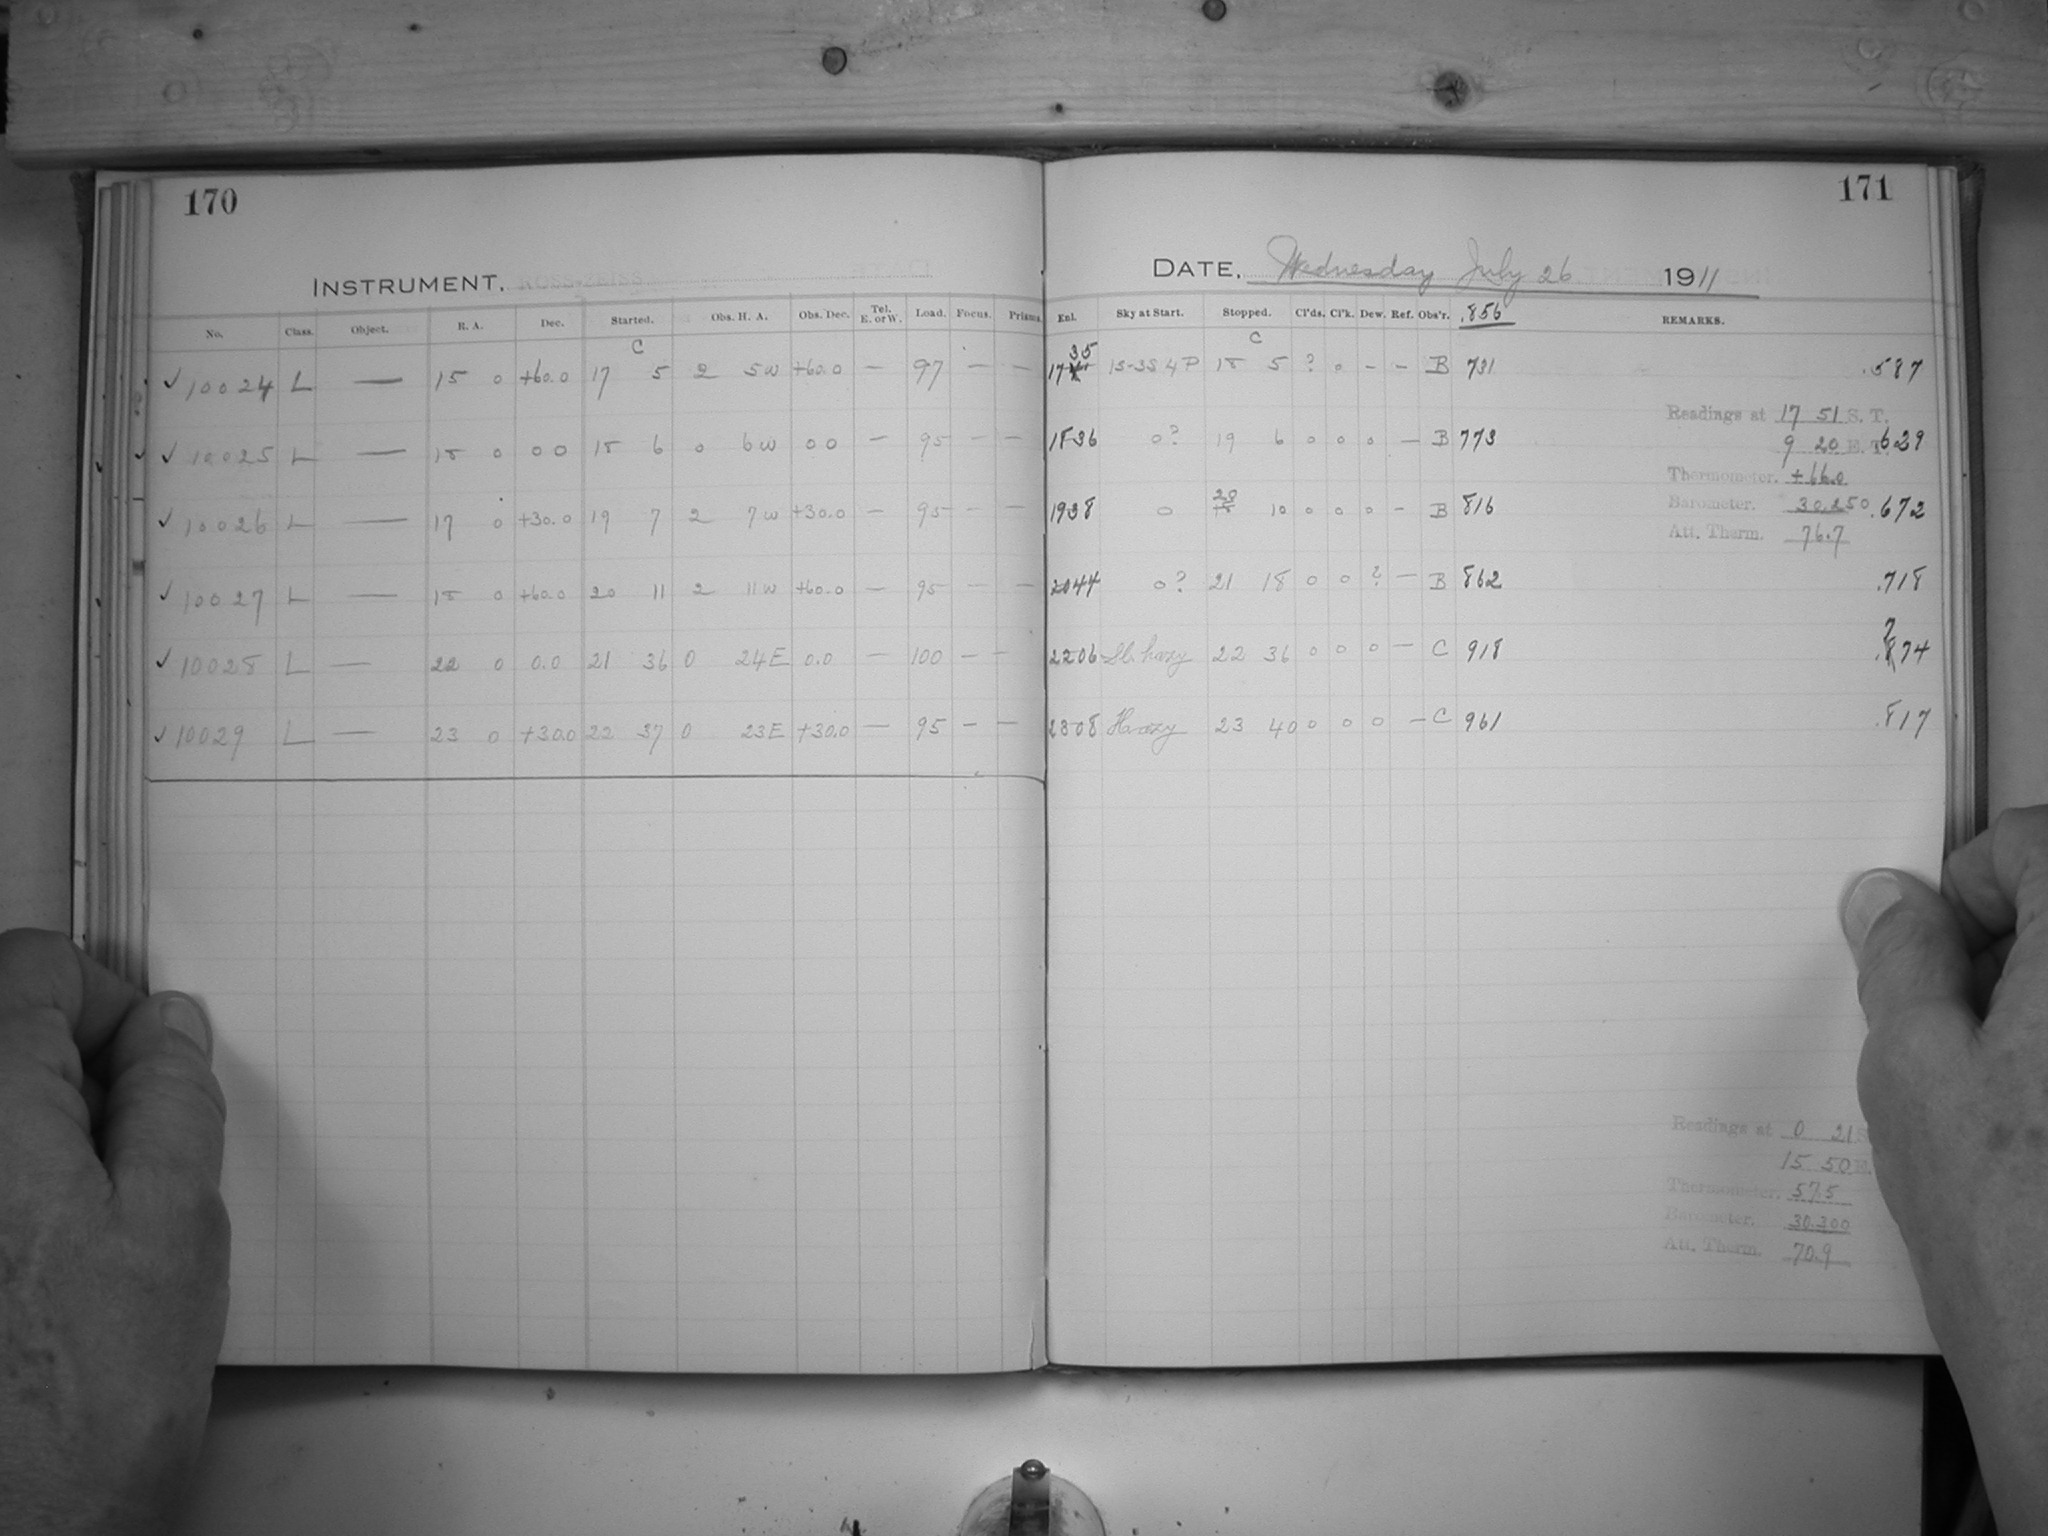 170
171
INSTRUMENT, ROSS-ZEISS
DATE, Wednesday July 26 1911
No. Class. Object. R. A. Dec. Started. Obs. H. A. Obs. Dec. Tel. E. or W. Load. Focus. Prisms. Enl. Sky at Start. Stopped. Cl'ds. Cl'k. Dew. Ref. Obs'r. .856 REMARKS.
C C
✓ 10024 L — 15 0 +60.0 17 5 2 5 W +60.0 — 97 — — 17 35 15-35 4 P 18 5 ? 0 - - B 731 .587
Readings at 17 51 S. T.
✓ 10025 L — 18 0 0 0 18 6 0 6 W 0 0 — 95 — — 18 36 0? 19 6 0 0 0 — B 773 .629
9 20 E. T.
Thermometer. +66.0
✓ 10026 L — 17 0 +30.0 19 7 2 7 W +30.0 — 95 — — 19 38 0 20 10 0 0 0 - B 816 .672
Barometer. 30.250
Att. Therm. 76.7
✓ 10027 L — 18 0 +60.0 20 11 2 11 W +60.0 — 95 — — 20 44 0? 21 18 0 0 ? — B 862 .718
✓ 10028 L — 22 0 0.0 21 36 0 24 E 0.0 — 100 — — 22 06 Sl. hazy 22 36 0 0 0 — C 918 .774
✓ 10029 L — 23 0 +30.0 22 37 0 23 E +30.0 — 95 — — 23 08 Hazy 23 40 0 0 0 — C 961 .817
Readings at 0 21 S
15 50 E.
Thermometer. 57.5
Barometer. 30.300
Att. Therm. 70.9